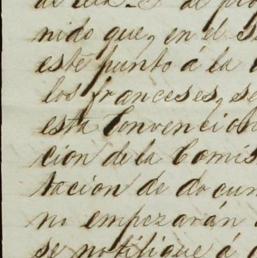 de pro
nido que, en el
este punto á la
los franceses, se
esta Convencion
cion de la Comis
tacion de docum
no empezarán
se notifique á